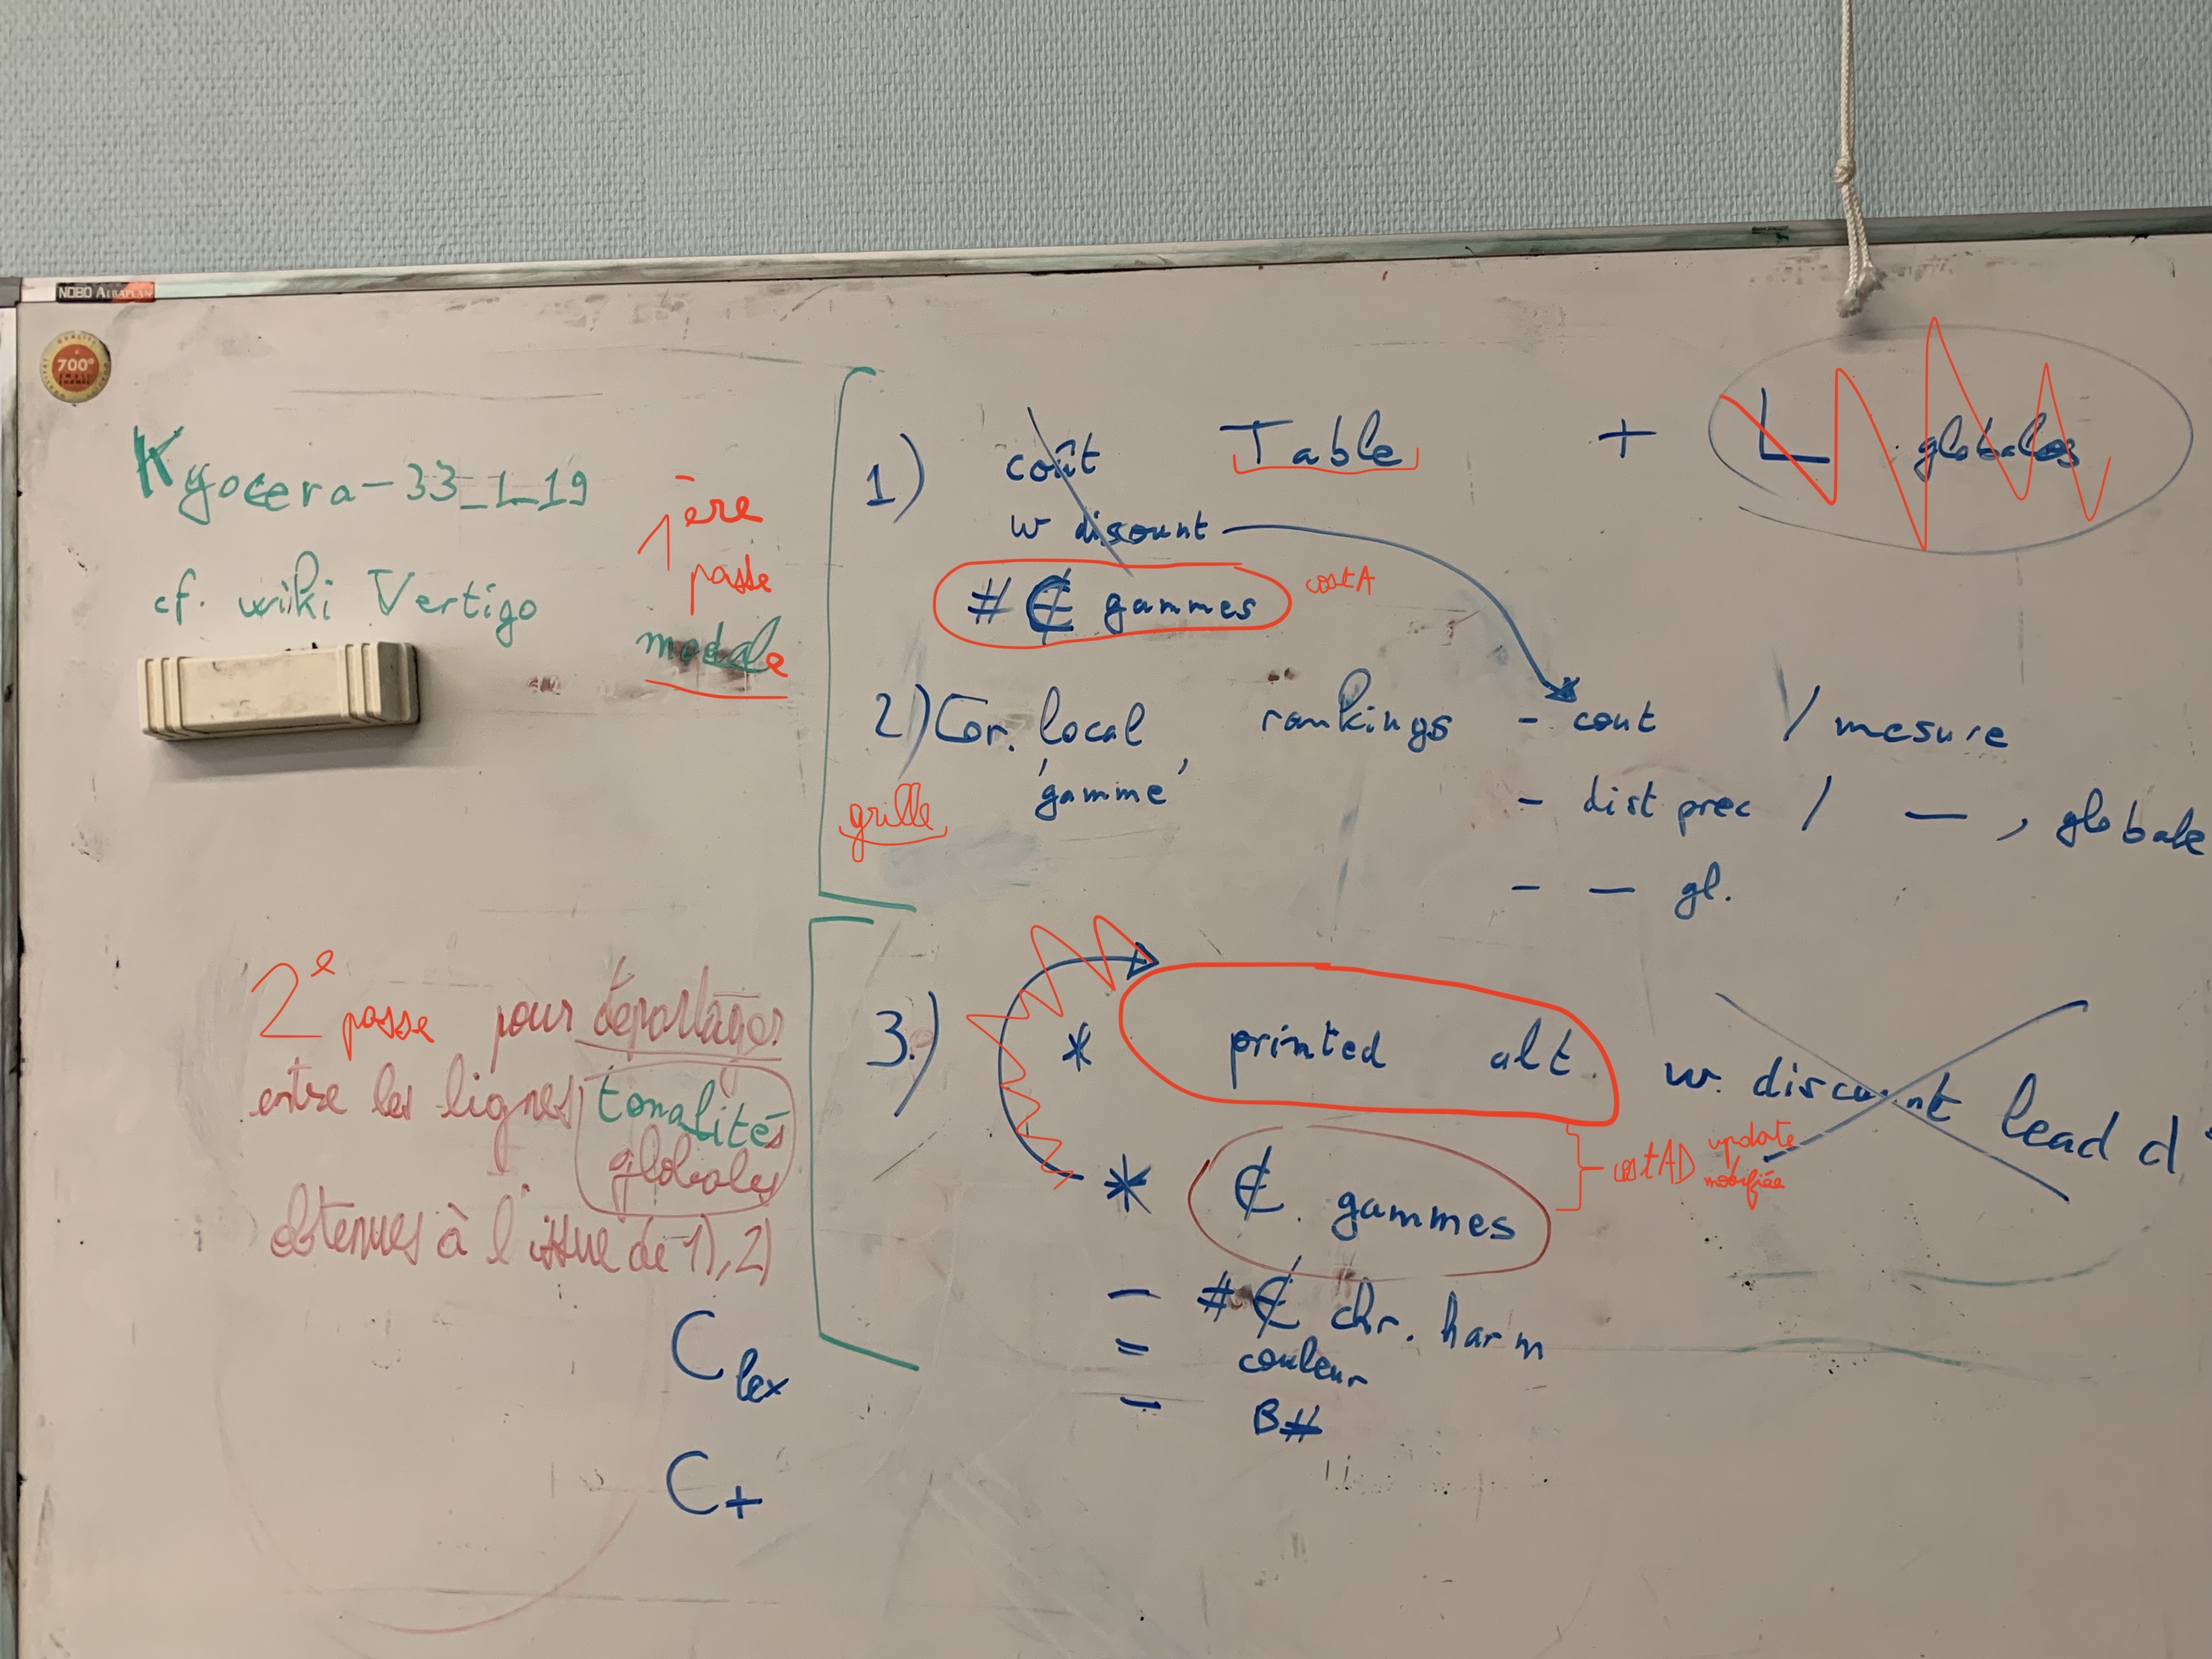 NOBO ALBAPLAN
QUALITE
700°
Kyocera-33_1_19
cf. wiki Vertigo
1ère
passe
modale
1) coût Table + L globales
w discount
# ∉ gammes costA
2) Cor. local rankings - cout / mesure
'gamme' - dist prec / — , globale
grille
- — gl.
2e passe pour départager
entre les lignes tonalités
globales
obtenues à l'issue de 1), 2)
3.) * printed alt. w. discount lead d
* ∉ gammes costAD update
modifiée
- # ∉ chr. harm
= couleur
- B#
C lex
C+